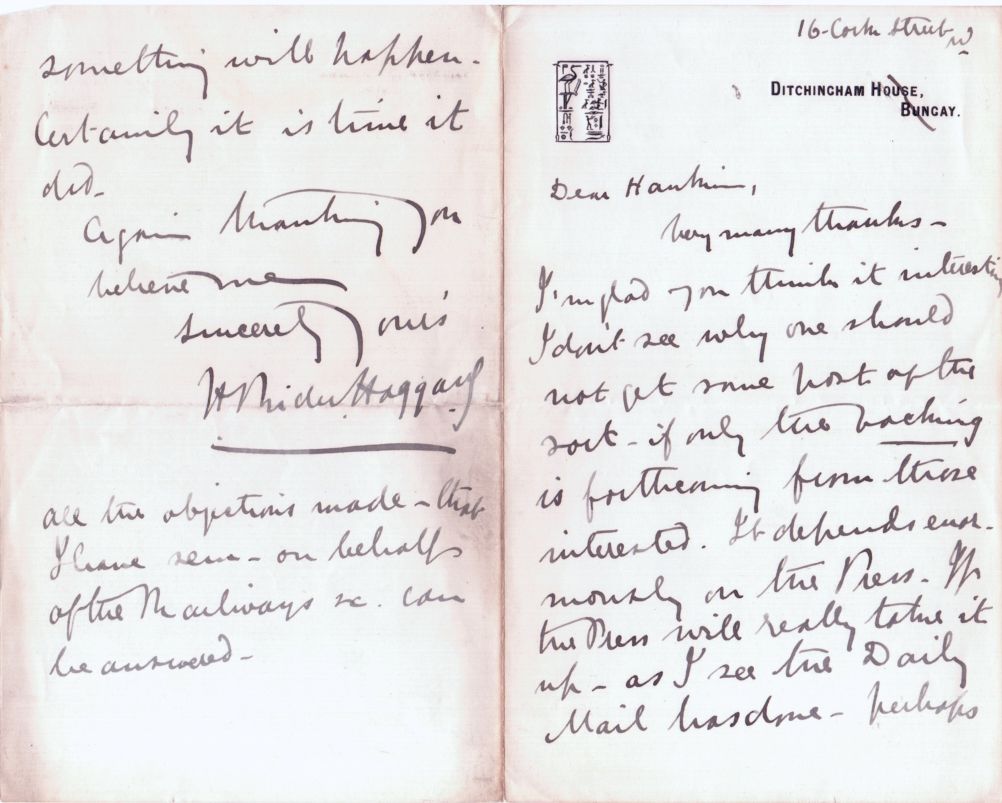 16 Cork Street W
DITCHINGHAM HOUSE,
BUNGAY.
Dear Hankin,
Very many thanks -
I'm glad you think it interesting
I don't see why one should
not get some post of the
sort - if only the backing
is forthcoming from those
interested. It depends enor-
mously on the Press. If
the Press will really take it
up - as I see the Daily
Mail has done - perhaps
something will happen -
Certainly it is time it
did -
Again thanking you
believe me
sincerely yours
H Rider Haggard
all the objections made - that
I have seen - on behalf
of the Railways &c. can
be answered -